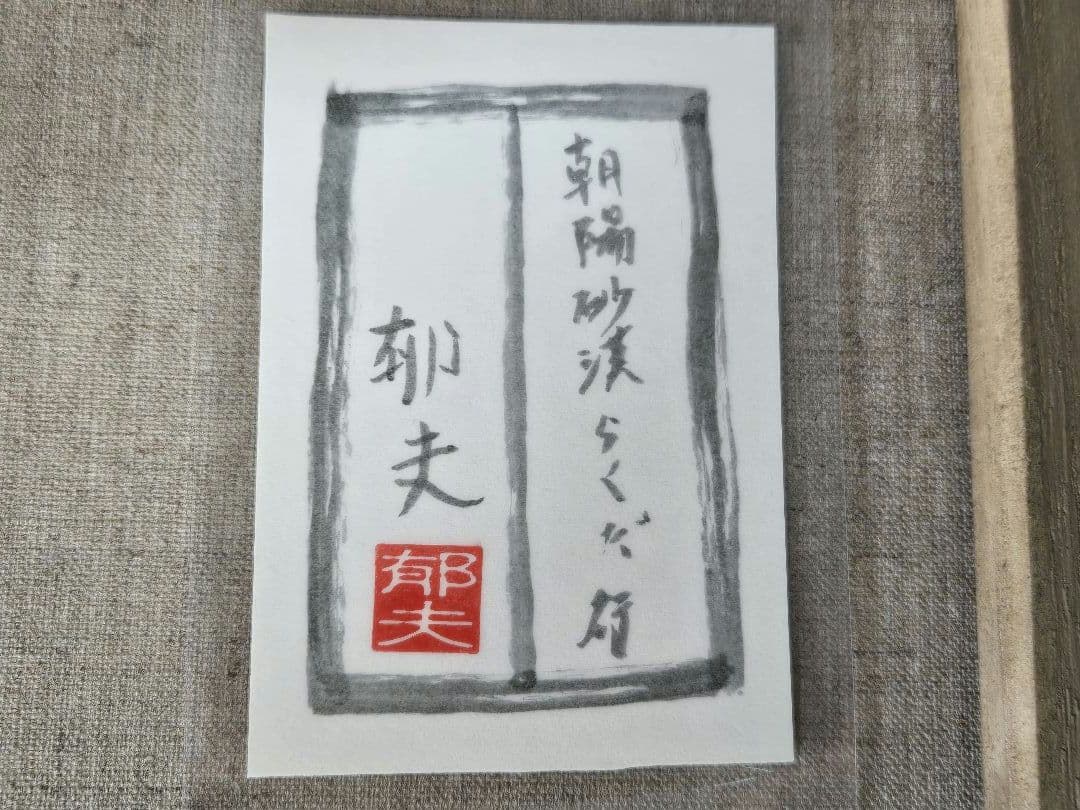 朝陽砂漠らくだ行
郁夫
郁夫